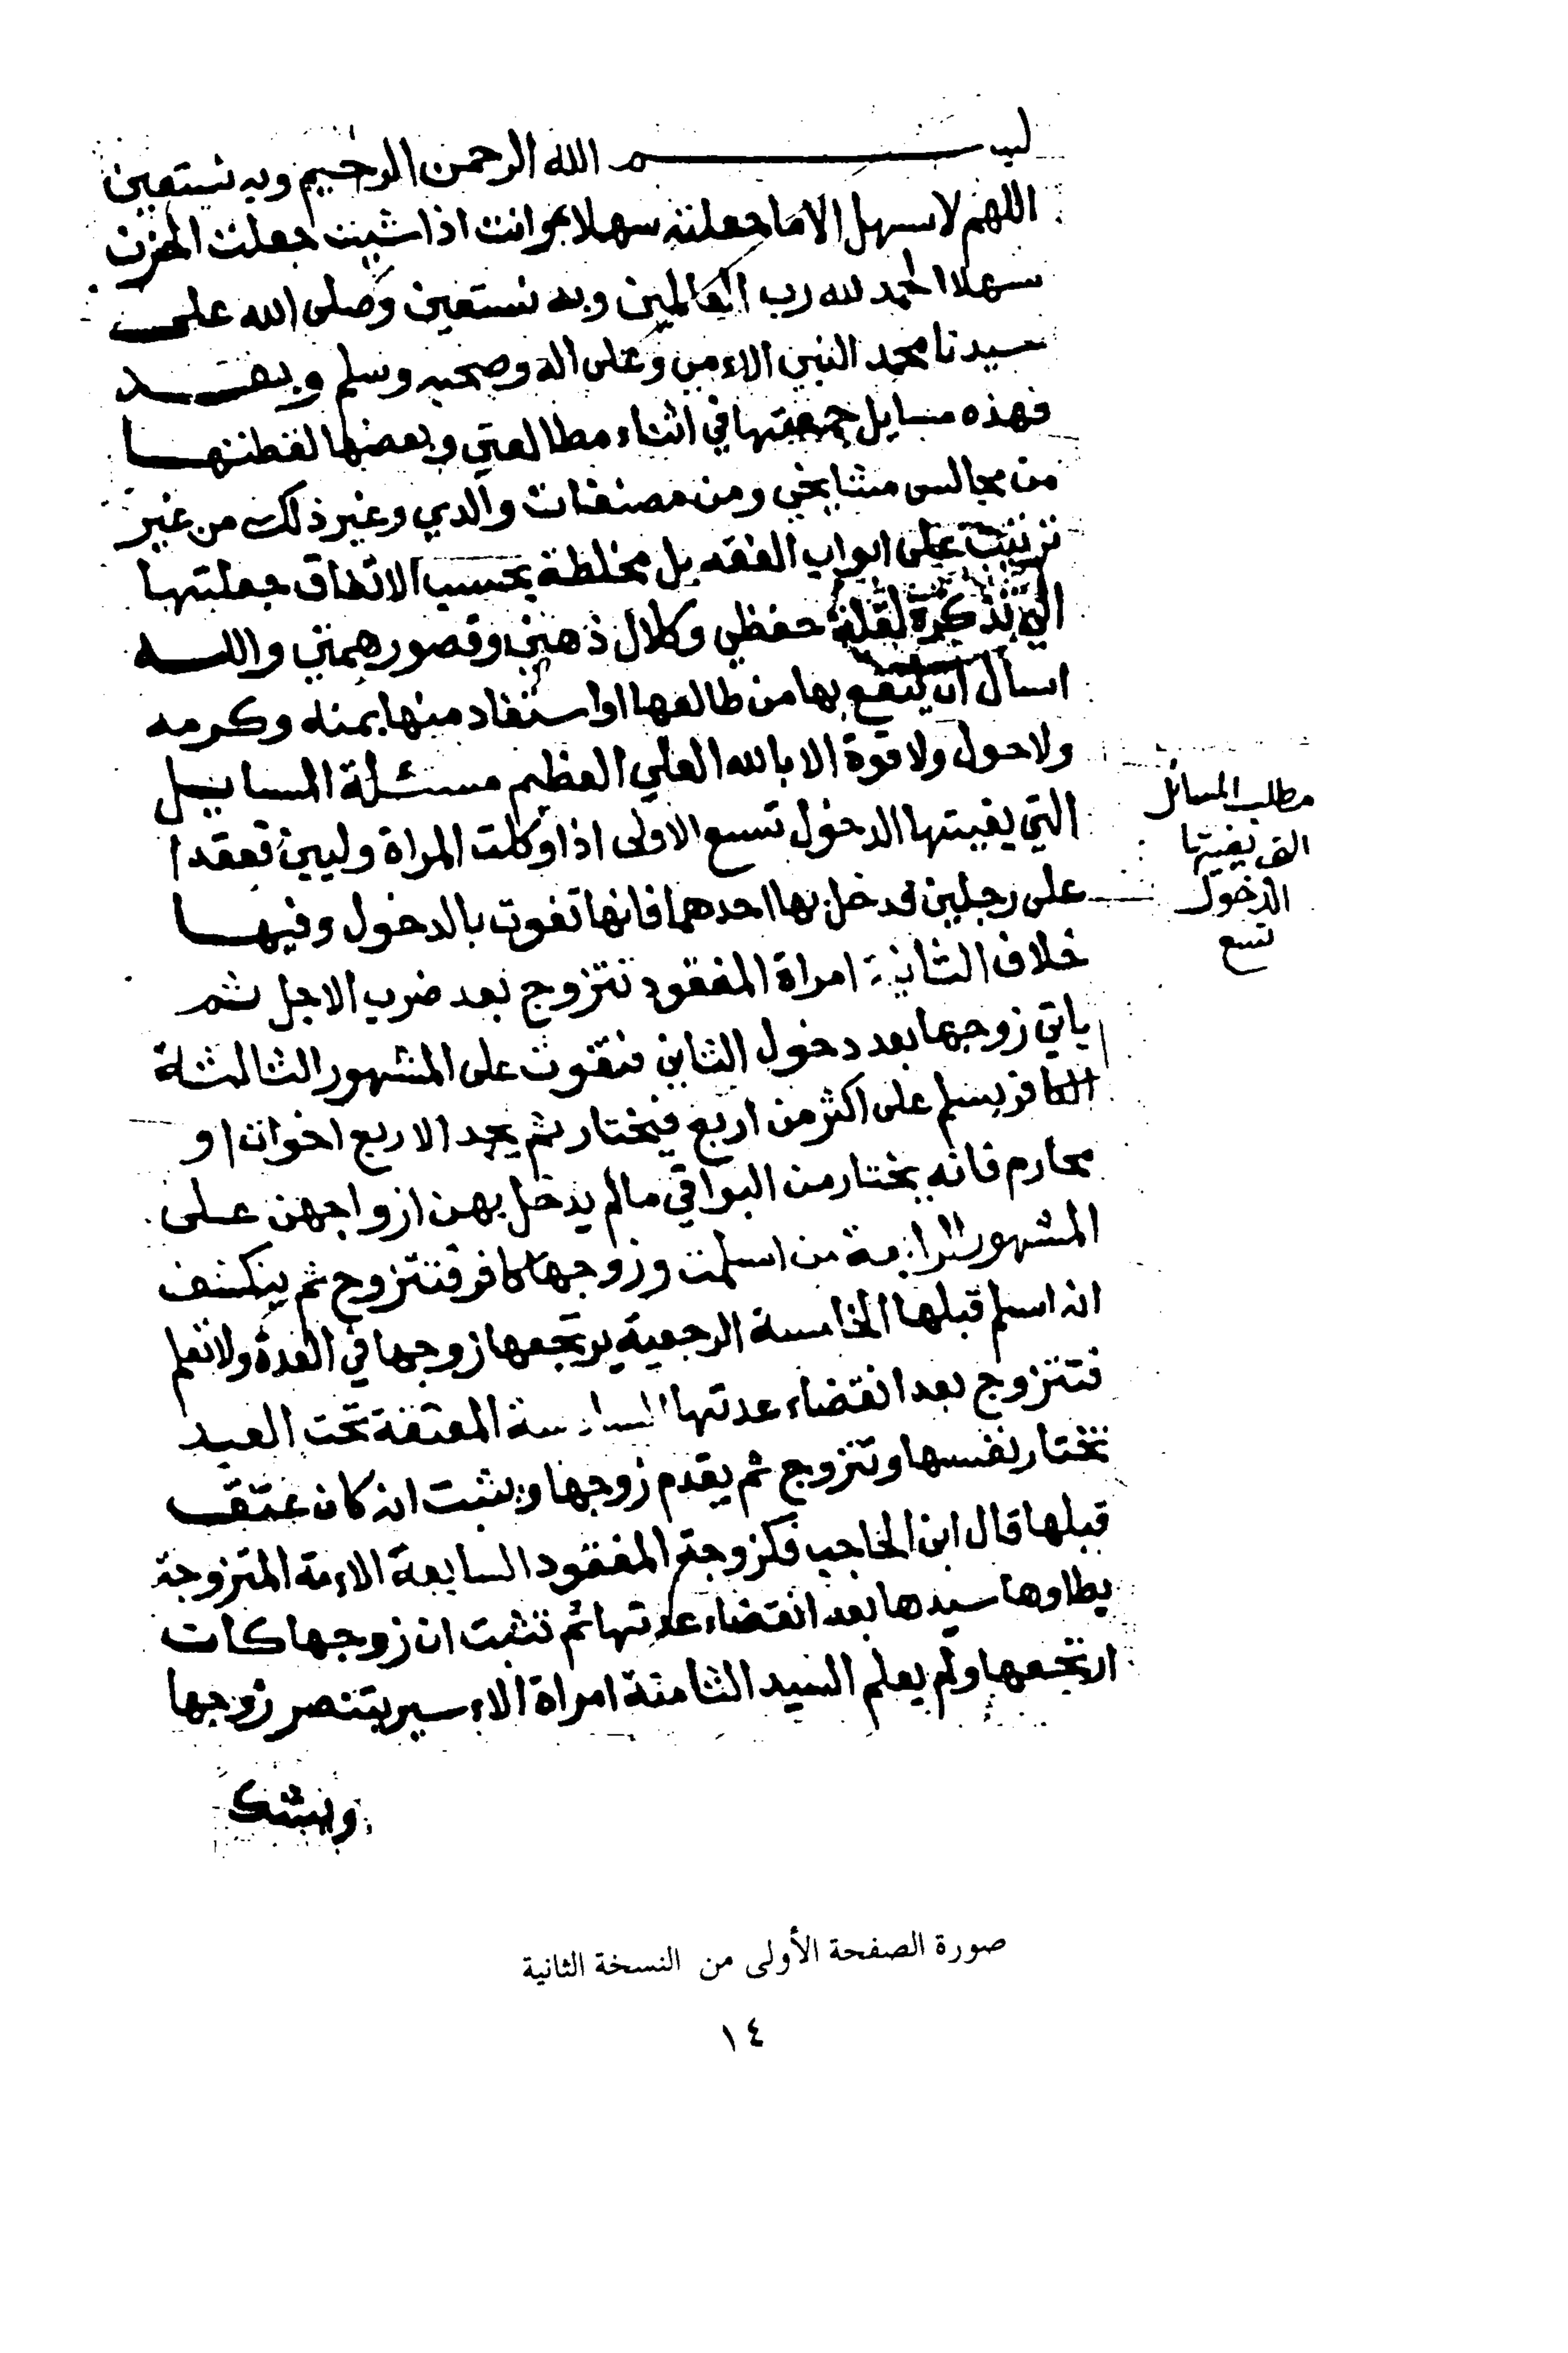 بسم الله الرحمن الرحيم وبه نستعين
اللهم لا سهل الا ما جعلته سهلا وانت اذا شيت جعلت الحزن
سهلا الحمد لله رب العالمين وبه نستعين وصلى الله على
سيدنا محمد النبي الامي وعلى اله وصحبه وسلم وبعد
فهذه مسايل جمعتها في اثناء مطالعتي وبعضها لقطتها
من مجالس مشايخي ومن مصنفات والدي وغير ذلك من غير
ترتيب على ابواب الفقه بل مخلطة بحسب الاتفاق جعلتها
لي تذكرة لقلة حفظي وكلال ذهني وقصور همتي والله
اسال ان ينفع بها من طالعها او استفاد منها بمنه وكرمه
ولا حول ولا قوة الا بالله العلي العظيم مسئلة المسايل
التي يفيتها الدخول تسع الاولى اذا وكلت المراة وليين فعقدا
على رجلين فدخل بها احدهما فانها تفوت بالدخول وفيها
خلاف الثانية امراة المفقود تتزوج بعد ضرب الاجل ثم
ياتي زوجها بعد دخول الثاني فتفوت على المشهور الثالثة
الكافر يسلم على اكثر من اربع فيختار ثم يجد الاربع اخوات او
محارم فانه يختار من البواقي ما لم يدخل بهن ازواجهن على
المشهور الرابعة من اسلمت وزوجها كافر فتتزوج ثم ينكشف
انه اسلم قبلها الخامسة الرجعية يرتجعها زوجها في العدة ولا تعلم
فتتزوج بعد انقضاء عدتها السادسة المعتقة تحت العبد
تختار نفسها وتتزوج ثم يقدم زوجها ويثبت انه كان عتق
قبلها قال ابن الحاجب فكزوجة المفقود السابعة الامة المتزوجة
يطاوها سيدها بعد انقضاء عدتها ثم تثبت ان زوجها كان
ارتجعها ولم يعلم السيد الثامنة امراة الاسير يتنصر زوجها
ويشك
مطلب المسائل
التي يفيتها
الدخول
تسع
صورة الصفحة الأولى من النسخة الثانية
١٤